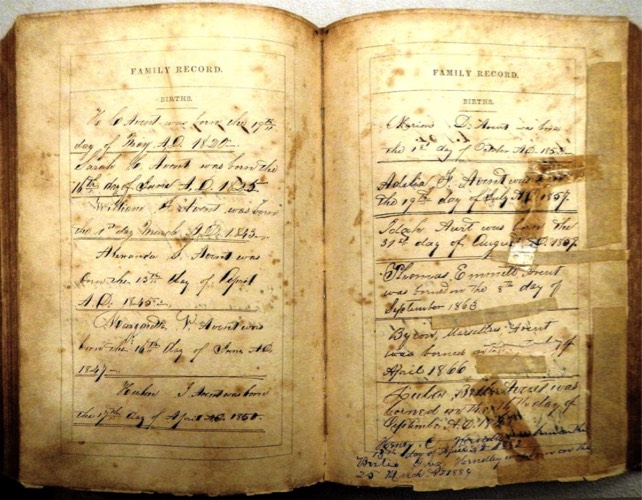 FAMILY RECORD.
BIRTHS.
H C Avent was born the 19th
day of May A.D. 1820
Sarah C. Avent was born the
16th day of June A.D. 1825
William Avent was born
the 1st day March A.D. 1843
Amanda Avent was
born the 15th day of April
A.D. 1845
Margarett V. Avent was
born the 16th day of June A.D.
1847
J. Avent was born
the 17th Day of April A.D. 1850
FAMILY RECORD.
BIRTHS.
Marion D. Avent was born
the 1st day of October A.D.
Adelia J. Avent was
the 19th day of July A.D. 1857.
Idah Avent was born the
31st day of August A.D.
Thomas Emmett Avent
was borned on the 8th day of
September 1863
Byron Marsellus Avent
was borned on
April 1866
Avent was
borned on the day of
September A.D.
born on the
day of April
born on the
25 March 1884